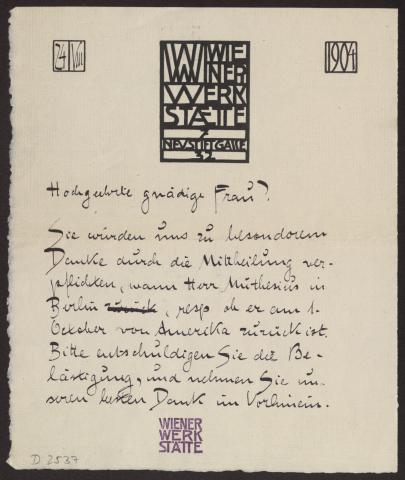 24 VIII
1904
WIE
NER
WERK
STÆTTE
7
NEUSTIFTGASSE
32
Hochgeehrte gnädige Frau!
Sie würden uns zu besonderem
Danke durch die Mittheilung ver-
pflichten, wann Herr Muthesius in
Berlin zurück, resp ob er am 1.
October von Amerika zurück ist.
Bitte entschuldigen Sie die Be-
lästigung, und nehmen Sie un-
seren besten Dank im Vorhinein.
WIENER
WERK
STÄTTE
D 2537